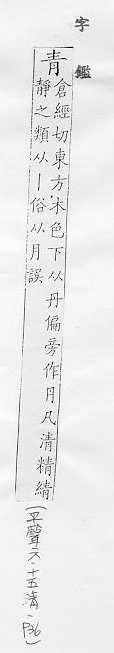 字鑑
青
倉經切東方木色下从丹偏旁作円凡清精綪
靜之類从丨俗从月誤
(平聲六·十五清·P36)